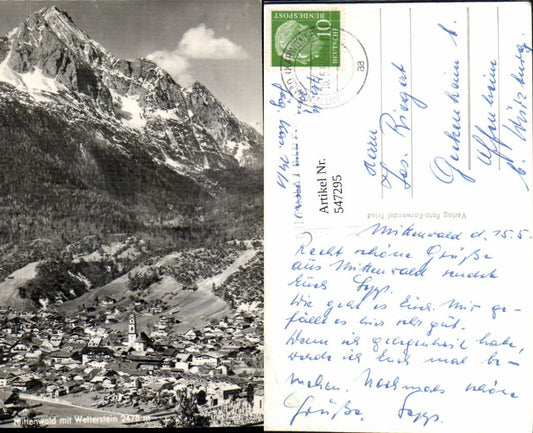 Mittenwald mit Wetterstein 2476 m
DEUTSCHE BUNDESPOST
10
Artikel Nr.
547295
Herrn
Jos. Riegert
b. Würzburg
Verlag Foto-Karwendel Fried
Mittenwald d. 15.5.
Recht schöne Grüße
aus Mittenwald sendet
Euch Sepp.
Wie geht es Euch. Mir ge-
fällt es hier sehr gut.
Wenn ich gelegenheit habe,
werde ich Euch mal be-
suchen. Nochmals schöne
Grüße. Sepp.